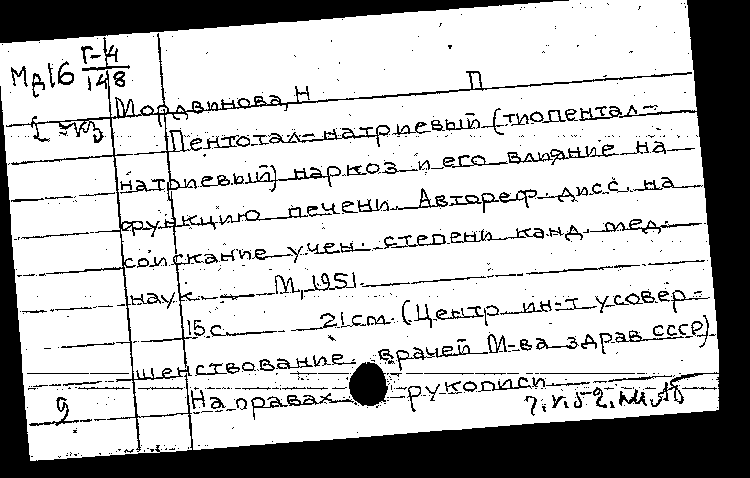 Мд16 Г-4/148
Мордвинова, Н П
1 экз
Пентотал-натриевый (тиопентал-
натриевый) наркоз и его влияние на
функцию печени. Автореф. дисс. на
соискание учен. степени канд. мед.
наук. — М, 1951.
15 с. 21 cm (Центр. ин-т усовер-
шенствование. врачей М-ва здрав СССР)
На правах рукописи
9